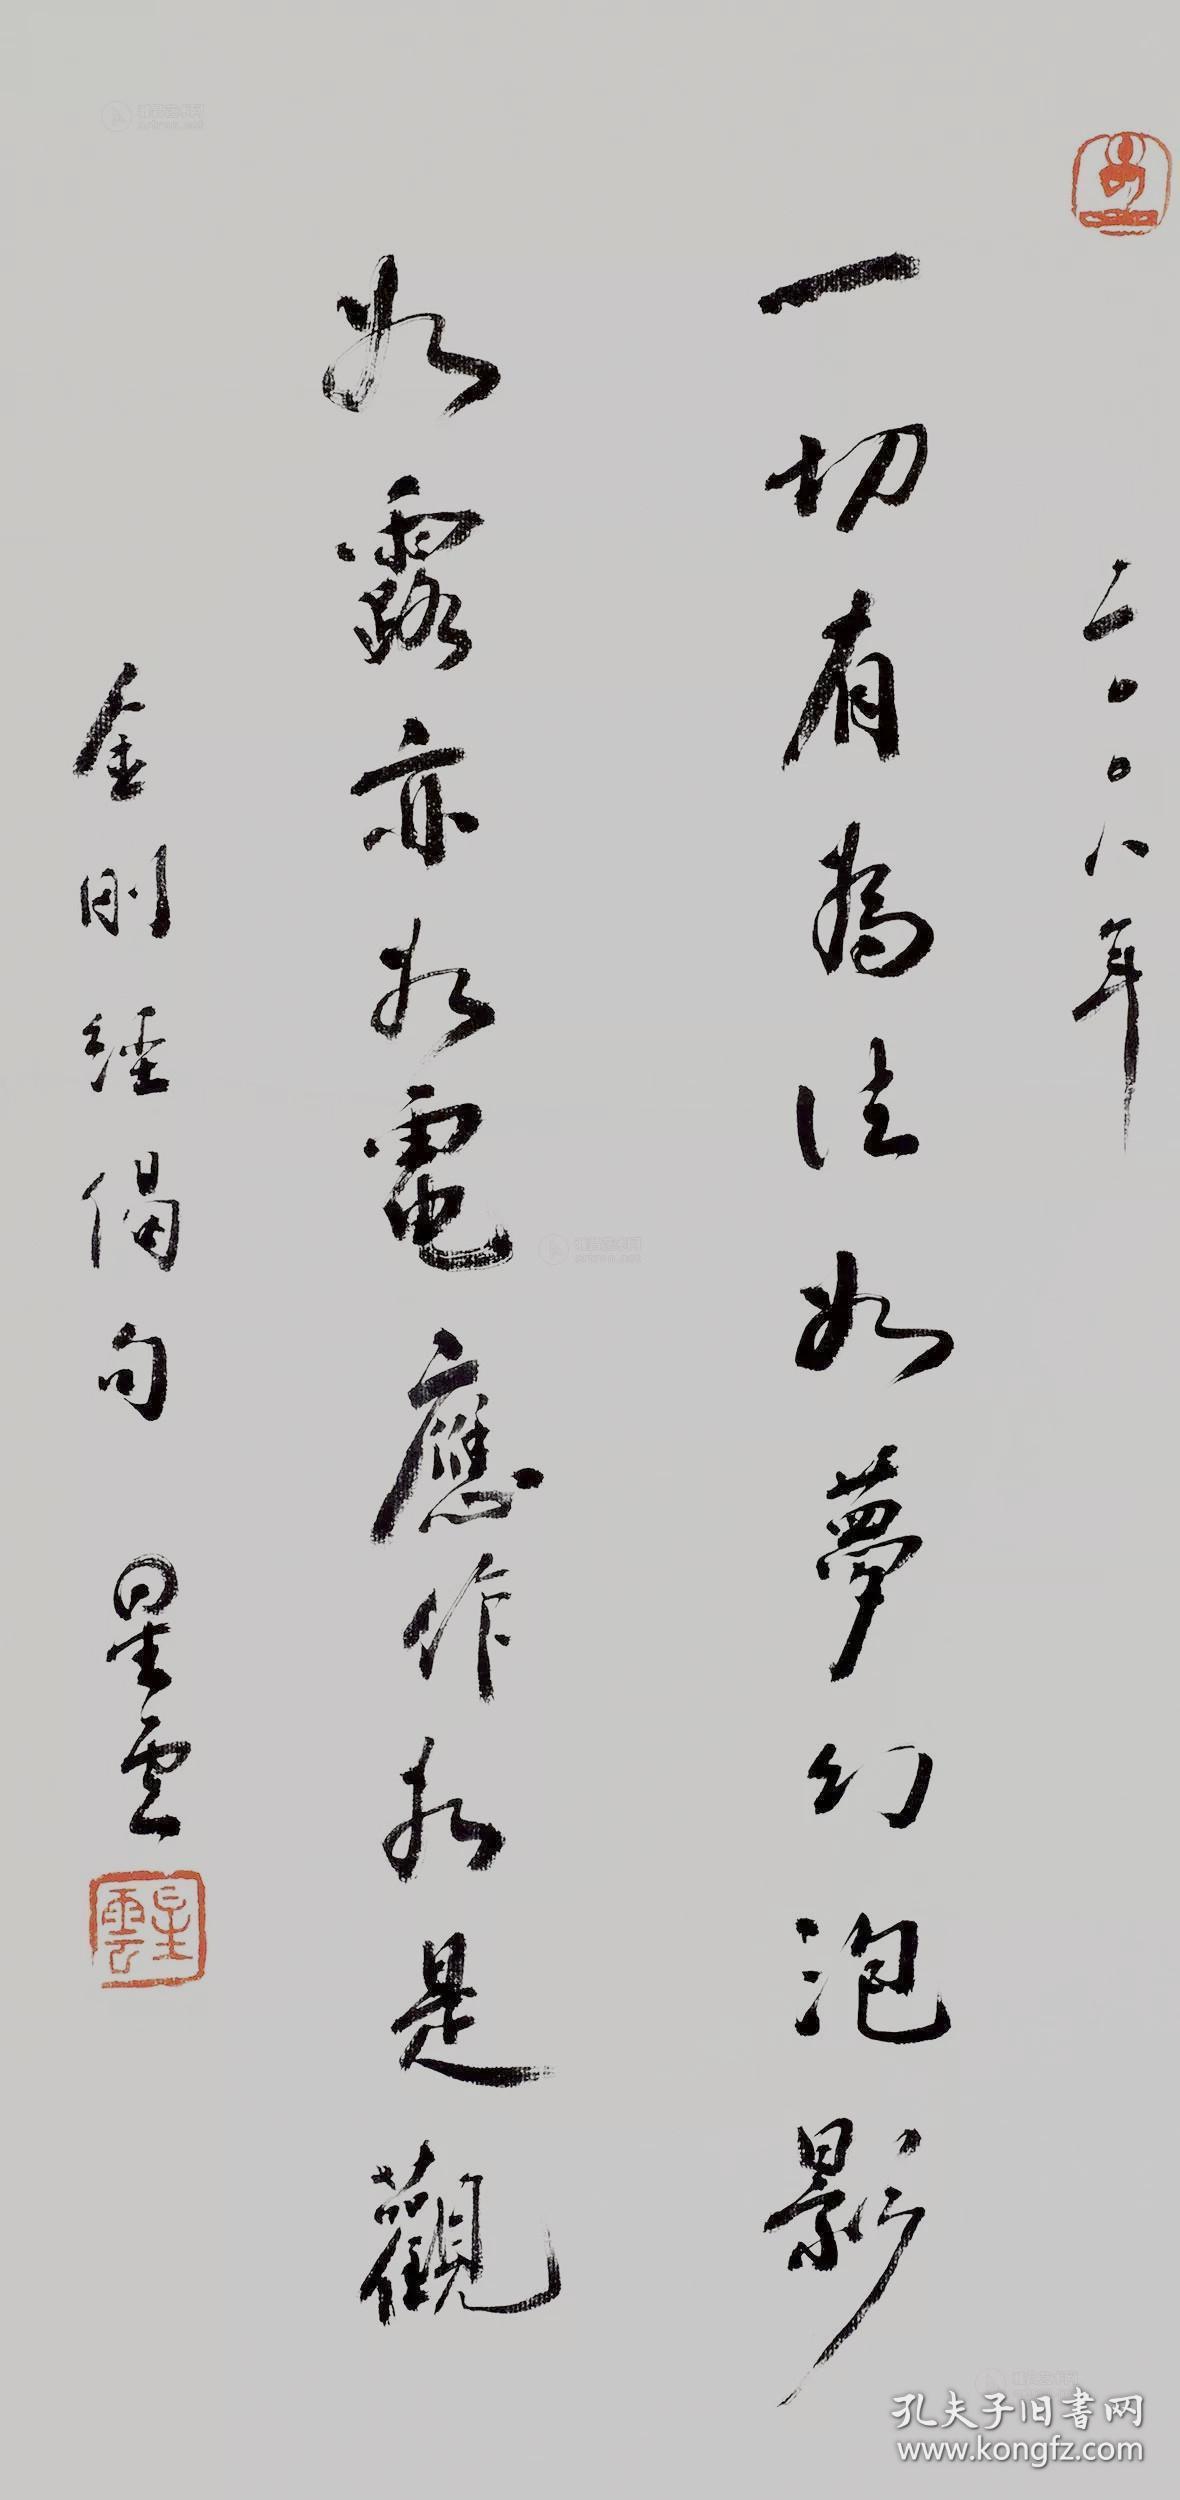 二〇〇八年
一切有為法如夢幻泡影
如露亦如電應作如是觀
金剛經偈句 星雲
星雲
孔夫子旧書网
www.kongfz.com